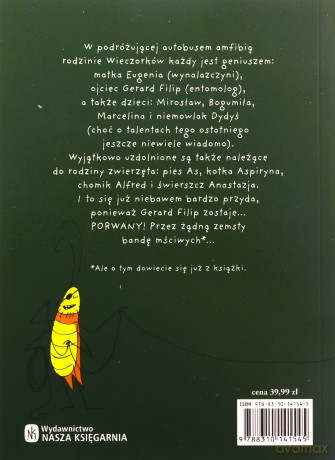 W podróżującej autobusem amfibią
rodzinie Wieczorków każdy jest geniuszem:
matka Eugenia (wynalazczyni),
ojciec Gerard Filip (entomolog),
a także dzieci: Mirosław, Bogumiła,
Marcelina i niemowlak Dydyś
(choć o talentach tego ostatniego
jeszcze niewiele wiadomo).
Wyjątkowo uzdolnione są także należące
do rodziny zwierzęta: pies As, kotka Aspiryna,
chomik Alfred i świerszcz Anastazja.
I to się już niebawem bardzo przyda,
ponieważ Gerard Filip zostaje...
PORWANY! Przez żądną zemsty
bandę mściwych*...
*Ale o tym dowiecie się już z książki.
cena 39,99 zł
ISBN 978-83-10-14154-5
9 788310 141545
NK
Wydawnictwo
NASZA KSIĘGARNIA
avamax